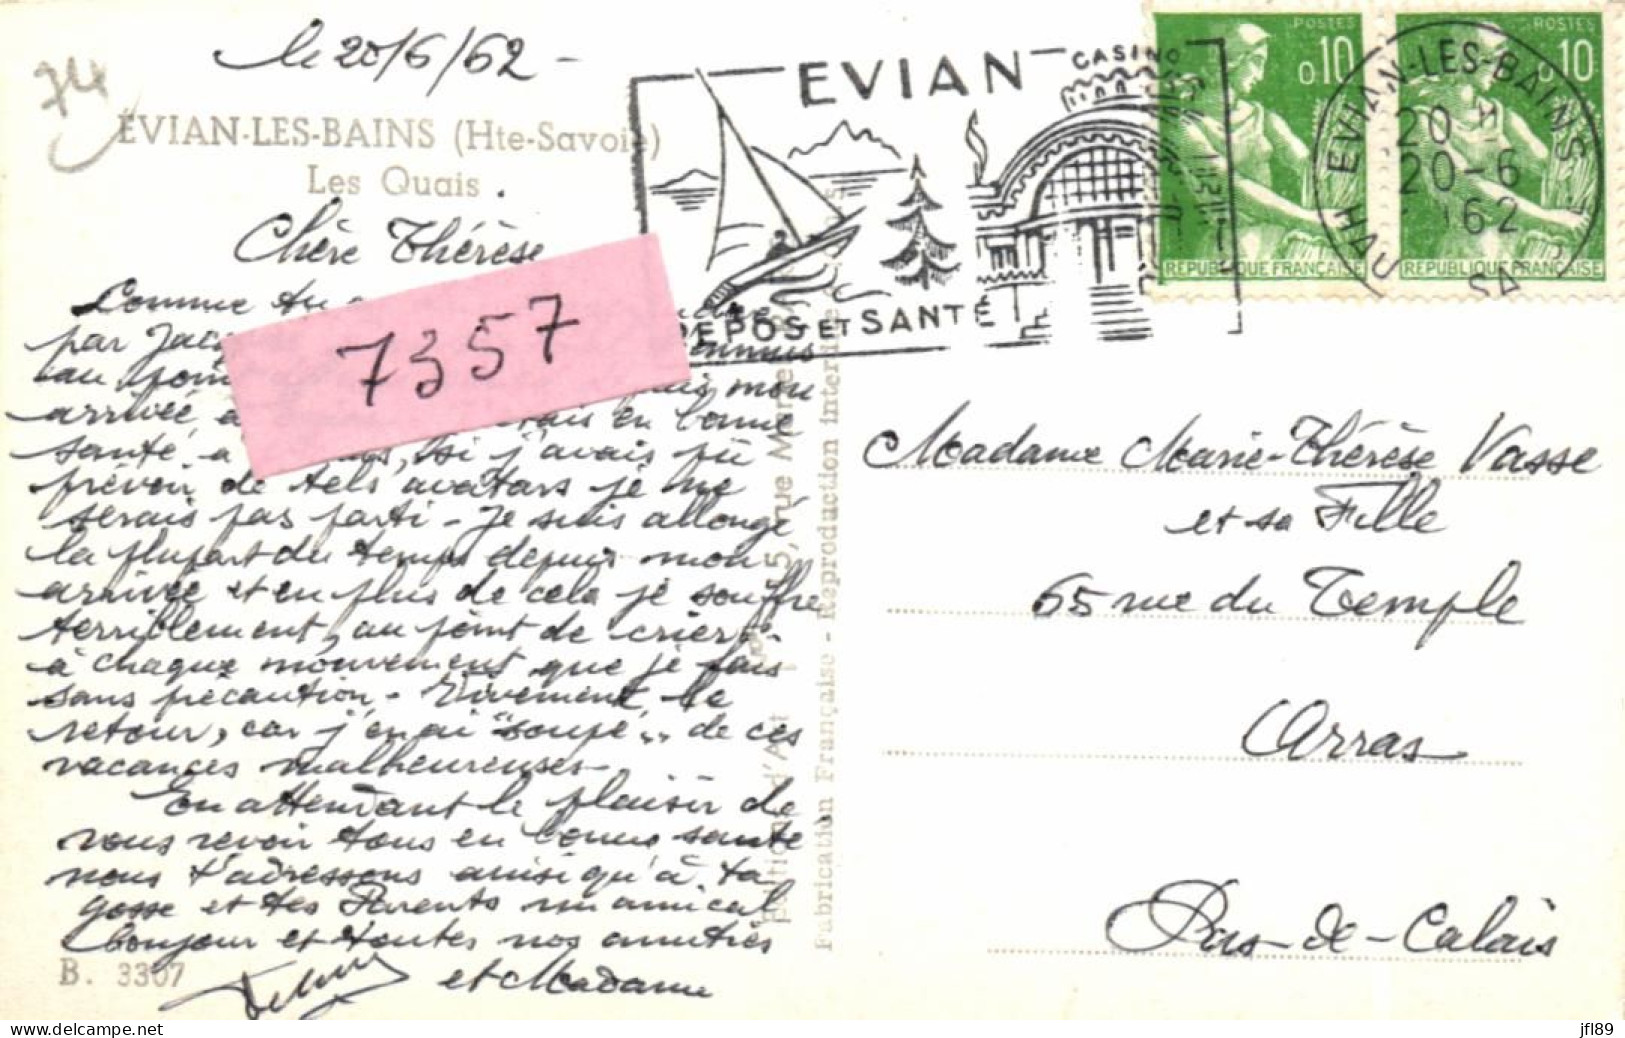 74
le 20/6/62 -
ÉVIAN-LES-BAINS (Hte-Savoie)
Les Quais
Chère Thérèse
Comme tu
par Jac
au poin mon
arrivée, a en bonne
santé, a , si j'avais pû
prévoir de tels avatars je ne
serais pas parti - Je suis allongé
la plupart du temps depuis mon
arrivée et en plus de cela je souffre
terriblement, au point de crier
à chaque mouvement que je fais
sans précaution - Vivement le
retour, car j'en ai "soupé" .. de ces
vacances malheureuses -
En attendant le plaisir de
vous revoir tous en bonne santé
nous t'adressons ainsi qu'à ta
gosse et tes Parents un amical
bonjour et toutes nos amitiés
et Madame
B. 3307
7357
EVIAN
CASINO
REPOS ET SANTÉ
POSTES
0,10
RÉPUBLIQUE FRANÇAISE
POSTES
0,10
RÉPUBLIQUE FRANÇAISE
EVIAN-LES-BAINS
20 H
20-6
62
Hte SA
5, rue
Fabrication Française - Reproduction interdite
Madame Marie-Thérèse Vasse
et sa Fille
65 rue du Temple
Arras
Pas-de-Calais
www.delcampe.net
jfl89